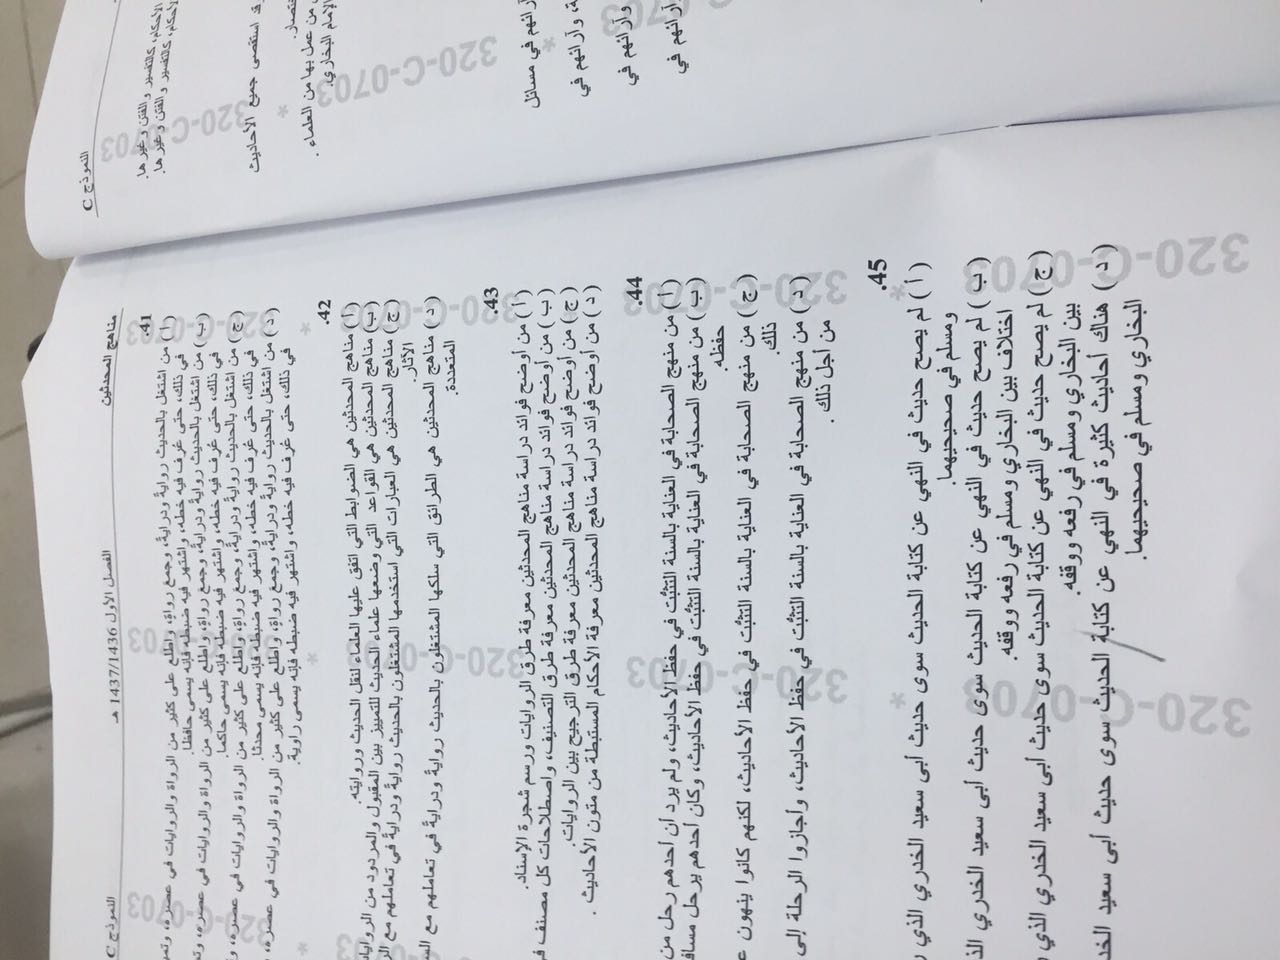 النموذج C
الأحكام، كالتفسير والفتن وغيرها.
الأحكام، كالتفسير والفتن وغيرها.
قد استقصى جميع الأحاديث
من عمل بها من العلماء .
الإمام البخاري.
وآرائهم في مسائل
وآرائهم في
وآرائهم في
وآرائهم في
320-C-0703
320-C-0703
مناهج المحدثين
الفصل الأول 1437/1436 هـ
النموذج C
41.
( أ ) من اشتغل بالحديث رواية ودراية، وجمع رواة، واطلع على كثير من الرواة والروايات في عصره، وتميز
في ذلك، حتى عُرف فيه خطه، واشتهر فيه ضبطه فإنه يسمى حافظا.
(ب) من اشتغل بالحديث رواية ودراية، وجمع رواة، واطلع على كثير من الرواة والروايات في عصره،
في ذلك، حتى عُرف فيه خطه، واشتهر فيه ضبطه فإنه يسمى حاكما.
(ج) من اشتغل بالحديث رواية ودراية، وجمع رواة، واطلع على كثير من الرواة والروايات في عصره،
في ذلك، حتى عُرف فيه خطه، واشتهر فيه ضبطه فإنه يسمى محدثا.
( د ) من اشتغل بالحديث رواية ودراية، وجمع رواة، واطلع على كثير من الرواة والروايات في عصره،
في ذلك، حتى عُرف فيه خطه، واشتهر فيه ضبطه فإنه يسمى راوية.
42.
( أ ) مناهج المحدثين هي الضوابط التي اتفق عليها العلماء لنقل الحديث وروايته.
(ب) مناهج المحدثين هي القواعد التي وضعها علماء الحديث للتمييز بين المقبول والمردود من الروايات
(ج) مناهج المحدثين هي العبارات التي استخدمها المشتغلون بالحديث رواية ودراية في تعاملهم مع
الآثار.
( د ) مناهج المحدثين هي الطرائق التي سلكها المشتغلون بالحديث رواية ودراية في تعاملهم مع
المتعددة.
43.
( أ ) من أوضح فوائد دراسة مناهج المحدثين معرفة طرق الروايات ورسم شجرة الإسناد.
( ب ) من أوضح فوائد دراسة مناهج المحدثين معرفة طرق التصنيف، واصطلاحات كل مصنف
( ج ) من أوضح فوائد دراسة مناهج المحدثين معرفة طرق الترجيح بين الروايات.
( د ) من أوضح فوائد دراسة مناهج المحدثين معرفة الأحكام المستنبطة من متون الأحاديث .
44.
( أ ) من منهج الصحابة في العناية بالسنة التثبّت في حفظ الأحاديث، ولم يرد أن أحدهم رحل من
(ب) من منهج الصحابة في العناية بالسنة التثبّت في حفظ الأحاديث، وكان أحدهم يرحل
حفظه.
(ج) من منهج الصحابة في العناية بالسنة التثبّت في حفظ الأحاديث، لكنهم كانوا ينهون
ذلك.
( د ) من منهج الصحابة في العناية بالسنة التثبّت في حفظ الأحاديث، وأجازوا الرحلة إلى
من أجل ذلك .
45.
( أ ) لم يصح حديث في النهي عن كتابة الحديث سوى حديث أبي سعيد الخدري الذي
ومسلم في صحيحيهما.
( ب ) لم يصح حديث في النهي عن كتابة الحديث سوى حديث أبي سعيد الخدري
اختلاف بين البخاري ومسلم في رفعه ووقفه.
( ج ) لم يصح حديث في النهي عن كتابة الحديث سوى حديث أبي سعيد الخدري الذي
بين البخاري ومسلم في رفعه ووقفه.
( د ) هناك أحاديث كثيرة في النهي عن كتابة الحديث سوى حديث أبي سعيد
البخاري ومسلم في صحيحيهما.
320-C-0703
320-C-0703